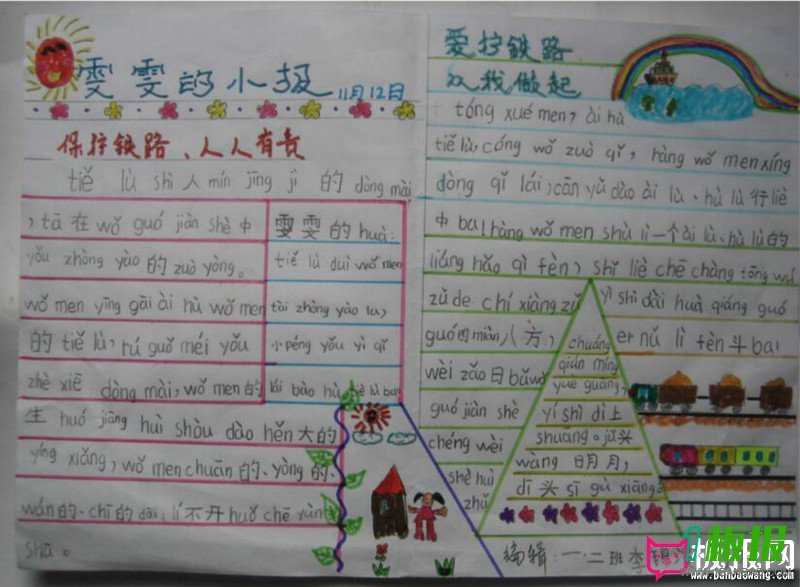 雯雯的小报 11月12日
保护铁路、人人有责
tiě lù shì 人 mín jīng jì 的 dòng mài
，tā 在 wǒ guó jiàn shè 中
yǒu zhòng yào 的 zuò yòng。
wǒ men yīng gāi ài hù wǒ men
的 tiě lù, rú guǒ méi yǒu
zhè xiē dòng mài, wǒ men 的
生 huó jiāng huì shòu dào hěn 大的
yíng xiǎng, wǒ men chuān 的、yòng 的、
wán 的、chī 的 dōu lí 不开 huǒ chē yùn
shū。
雯雯的 huà：
tiě lù duì wǒ men
tài zhòng yào lu,
小 péng yǒu yì qǐ
lái bǎo hù tiě lù ba
爱护铁路
从我做起
tóng xué men, ài hù
tiě lù, cóng wǒ zuò qǐ, ràng wǒ men xíng
dòng qǐ lái, cān yǔ dào ài lù、hù lù 行 liè
中 ba! ràng wǒ men shù lì 一个 ài lù、hù lù 的
liáng hǎo qì fēn, shǐ liè chē chàng tōng wú
zǔ de chí xiàng zǔ
guó 四 miàn 八方,
wèi zǎo 日 bǎ wǒ
guó jiàn shè
chéng wéi
shè huì
zhǔ
yì shì dài huà qiáng guó
ér nǔ lì fèn 斗 ba!
chuáng
qián míng
yuè guāng,
yí shì dì 上
shuāng。jǔ 头
wàng 明月,
dī 头 sī gù xiāng。
编辑：一·二班 李
板报网
www.banbaowang.com